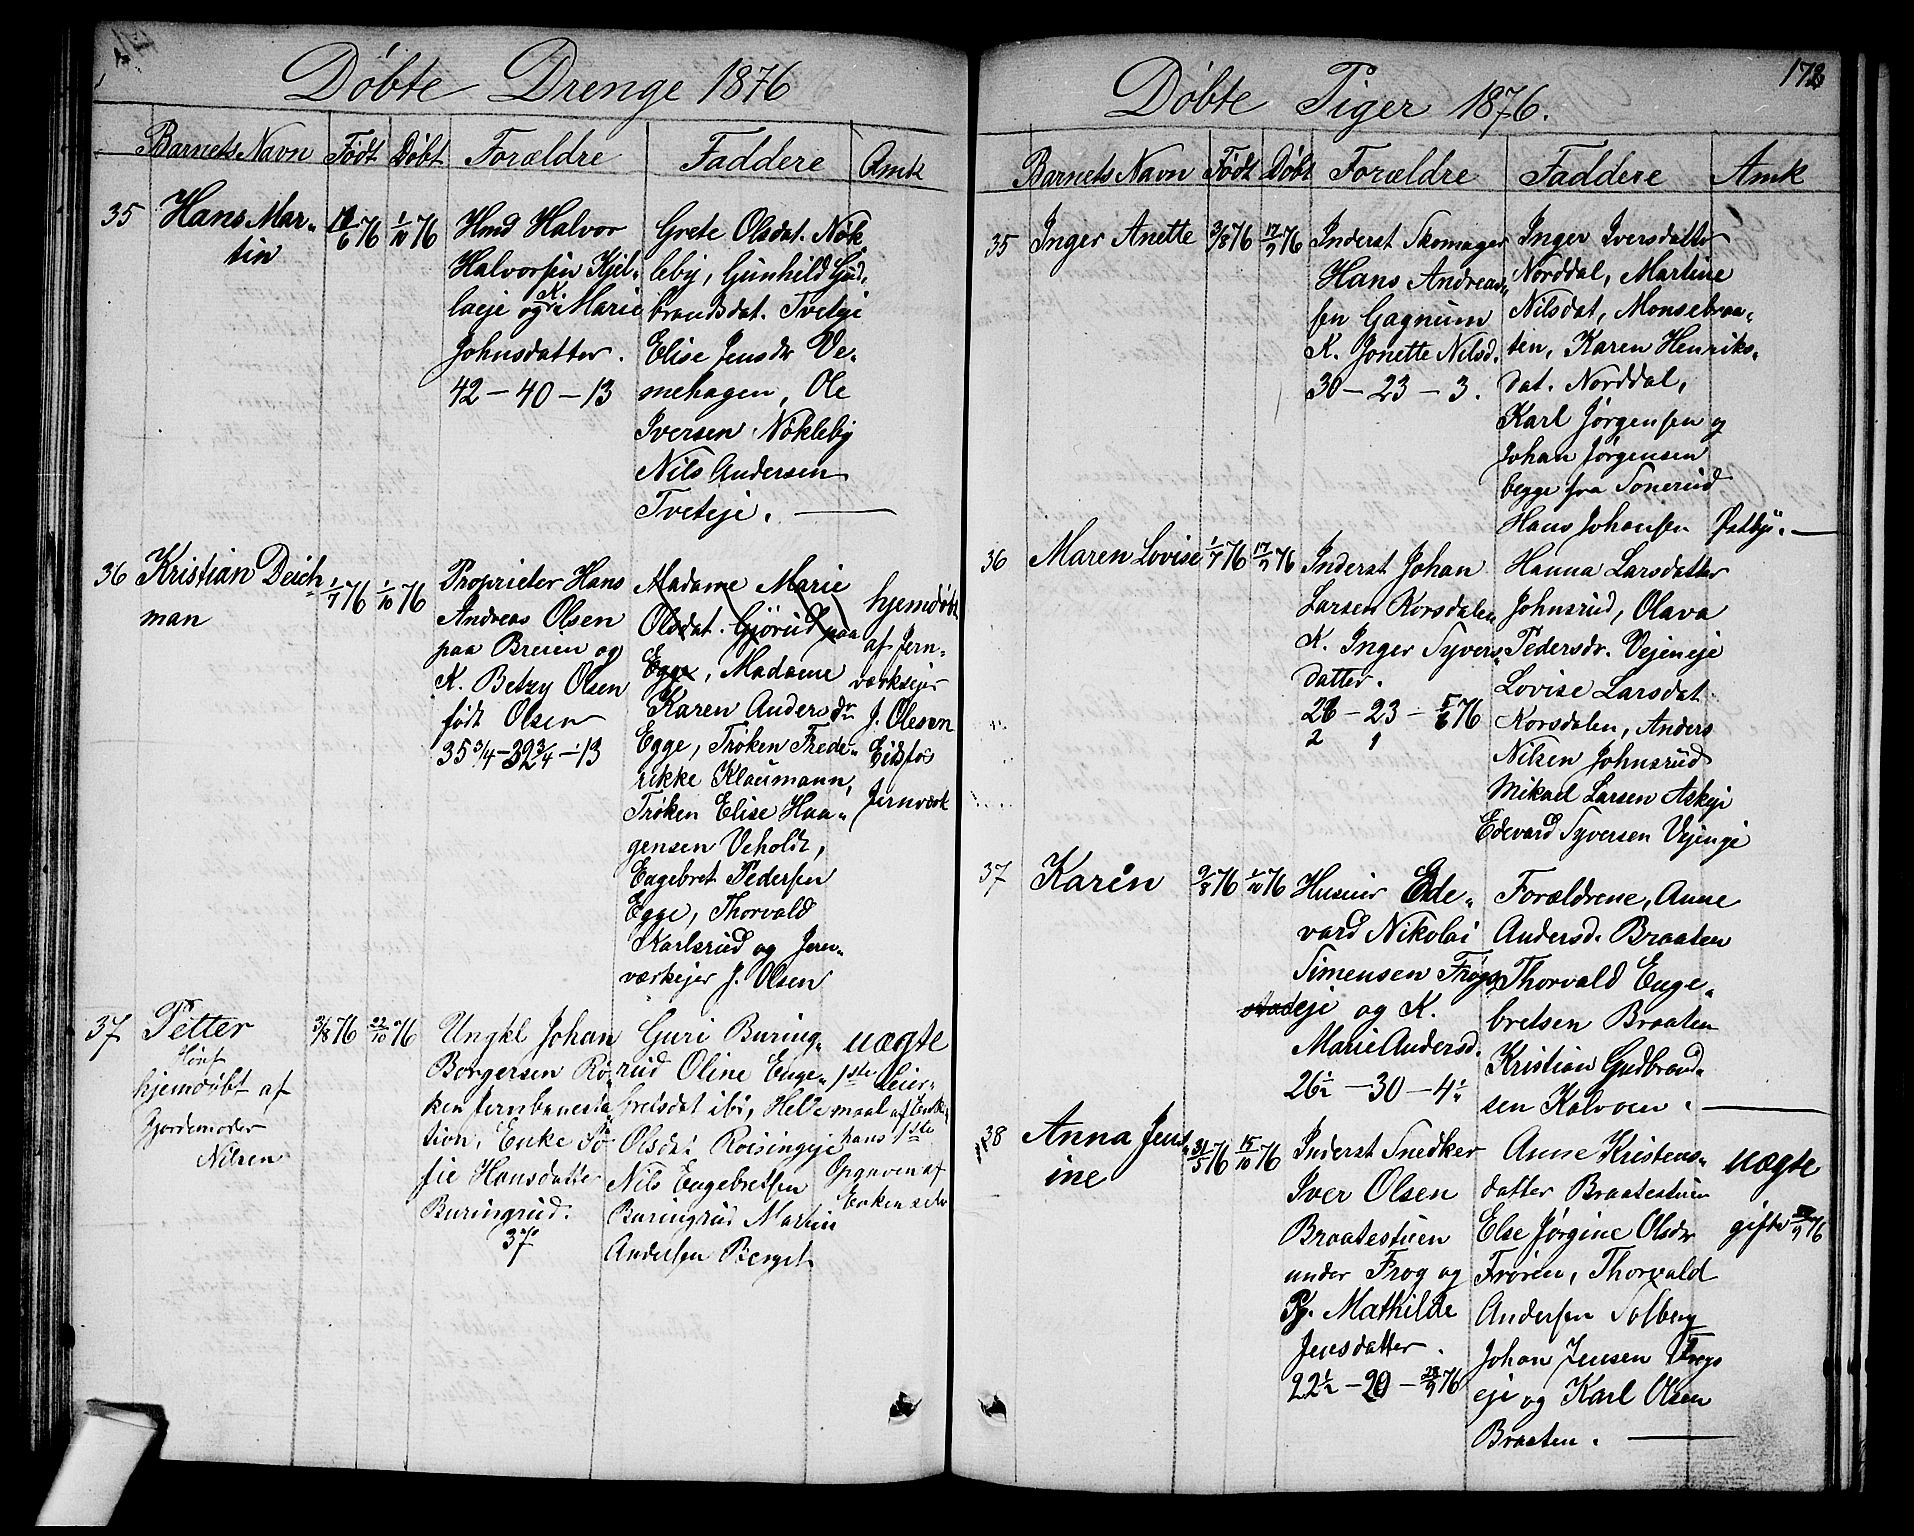 Døbte Drenge 1876
Barnets Navn Født Døbt Forældre Faddere Amk
35 Hans Mar-
tin
6 76 1/10 76
Hmd Halvor
Halvorsen Kjel-
laeje og K. Marie
Johnsdatter.
42 - 40 - 13
Grete Olsdat. Nøk
leby, Gunhild Gud-
brandsdat. Tveteje
Elise Jensdr Ve-
mehagen, Ole
Iversen Nøkleby
Nils Andersen
Tveteje.
36 Kristian Deich-
man
1/7 76 1/10 76
Proprietær Hans
Andreas Olsen
paa Breien og
K. Betzy Olsen
født Olsen
35 3/4 - 32 3/4 - 13
Madame Marie
Olsdat. Gjørud paa
Egge, Madame
Karen Andersdr
Egge, Frøken Frede-
rikke Klaumann,
Frøken Elise Haa-
gensen Veholdt,
Engebret Pedersen
Egge, Thorvald
Karlsrud og Jern-
værksejer J. Olsen
hjemdøbt
af Jern-
værksejer
J. Olesen
Eidsfos
Jernværk
37 Petter
hjemdøbt af
Gjordemoder
Nilsen
3/8 76 22/10 76
Ungkl Johan
Borgersen Rø-
ken Jernbanesta
tion, Enke So
fie Hansdatter
Buringrud.
37
Guri Buring-
rud Oline Enge-
bretsdat ibi, Helve
Olsdat Roisingeje
Nils Engebretsen
Buringrud Martin
Andersen Berget
uægte
1ste Leier-
maal af Enke,
hans 1ste
Opgaven af
Enken selv
Døbte Piger 1876. 178
Barnets Navn Født Døbt Forældre Faddere Amk
35 Inger Anette 3/8 76 17/9 76
Inderst Skomager
Hans Andreas-
sen Gagnum
K. Jonette Nilsd.
30 - 23 - 3.
Inger Iversdatter
Norddal, Martine
Nilsdat, Monsebraa-
ten, Karen Henriks-
dat. Norddal,
Karl Jørgensen og
Johan Jørgensen
begge fra Tonerud
Hans Johansen Østbye.
36 Maren Lovise 1/7 76 17/9 76
Inderst Johan
Larsen Korsdalen
K. Inger Syvers-
datter.
26 - 23 - 5/6 76
2 1
Hanna Larsdatter
Johnsrud, Olava
Pedersdr. Vejeneje
Lovise Larsdat
Korsdalen, Anders
Nilsen Johnsrud
Mikael Larsen Askeje
Edevard Syversen Vejeneje
37 Karen 9/8 76 1/10 76
Huseier Ede-
vard Nikolai
Simensen Frøgs
eje og K.
Marie Andersd.
26 1/2 - 30 - 4 1/2
Forældrene, Anne
Andersd. Braaten
Thorvald Enge-
bretsen Braaten
Kristian Gudbrand-
sen Kalvoen.
38 Anna Jens-
ine
31/5 76 15/10 76
Inderst Snedker
Iver Olsen
Braatestuen
under Frog og
Pg. Mathilde
Jensdatter.
22 1/2 - 20 - 28/9 76
Anne Kristens-
datter Braatestuen
Else Jørgine Olsdr
Frøren, Thorvald
Andersen Solberg
Johan Jensen Frogs
eje og Karl Olsen
Braaten.
uægte
gifte 28/9 76